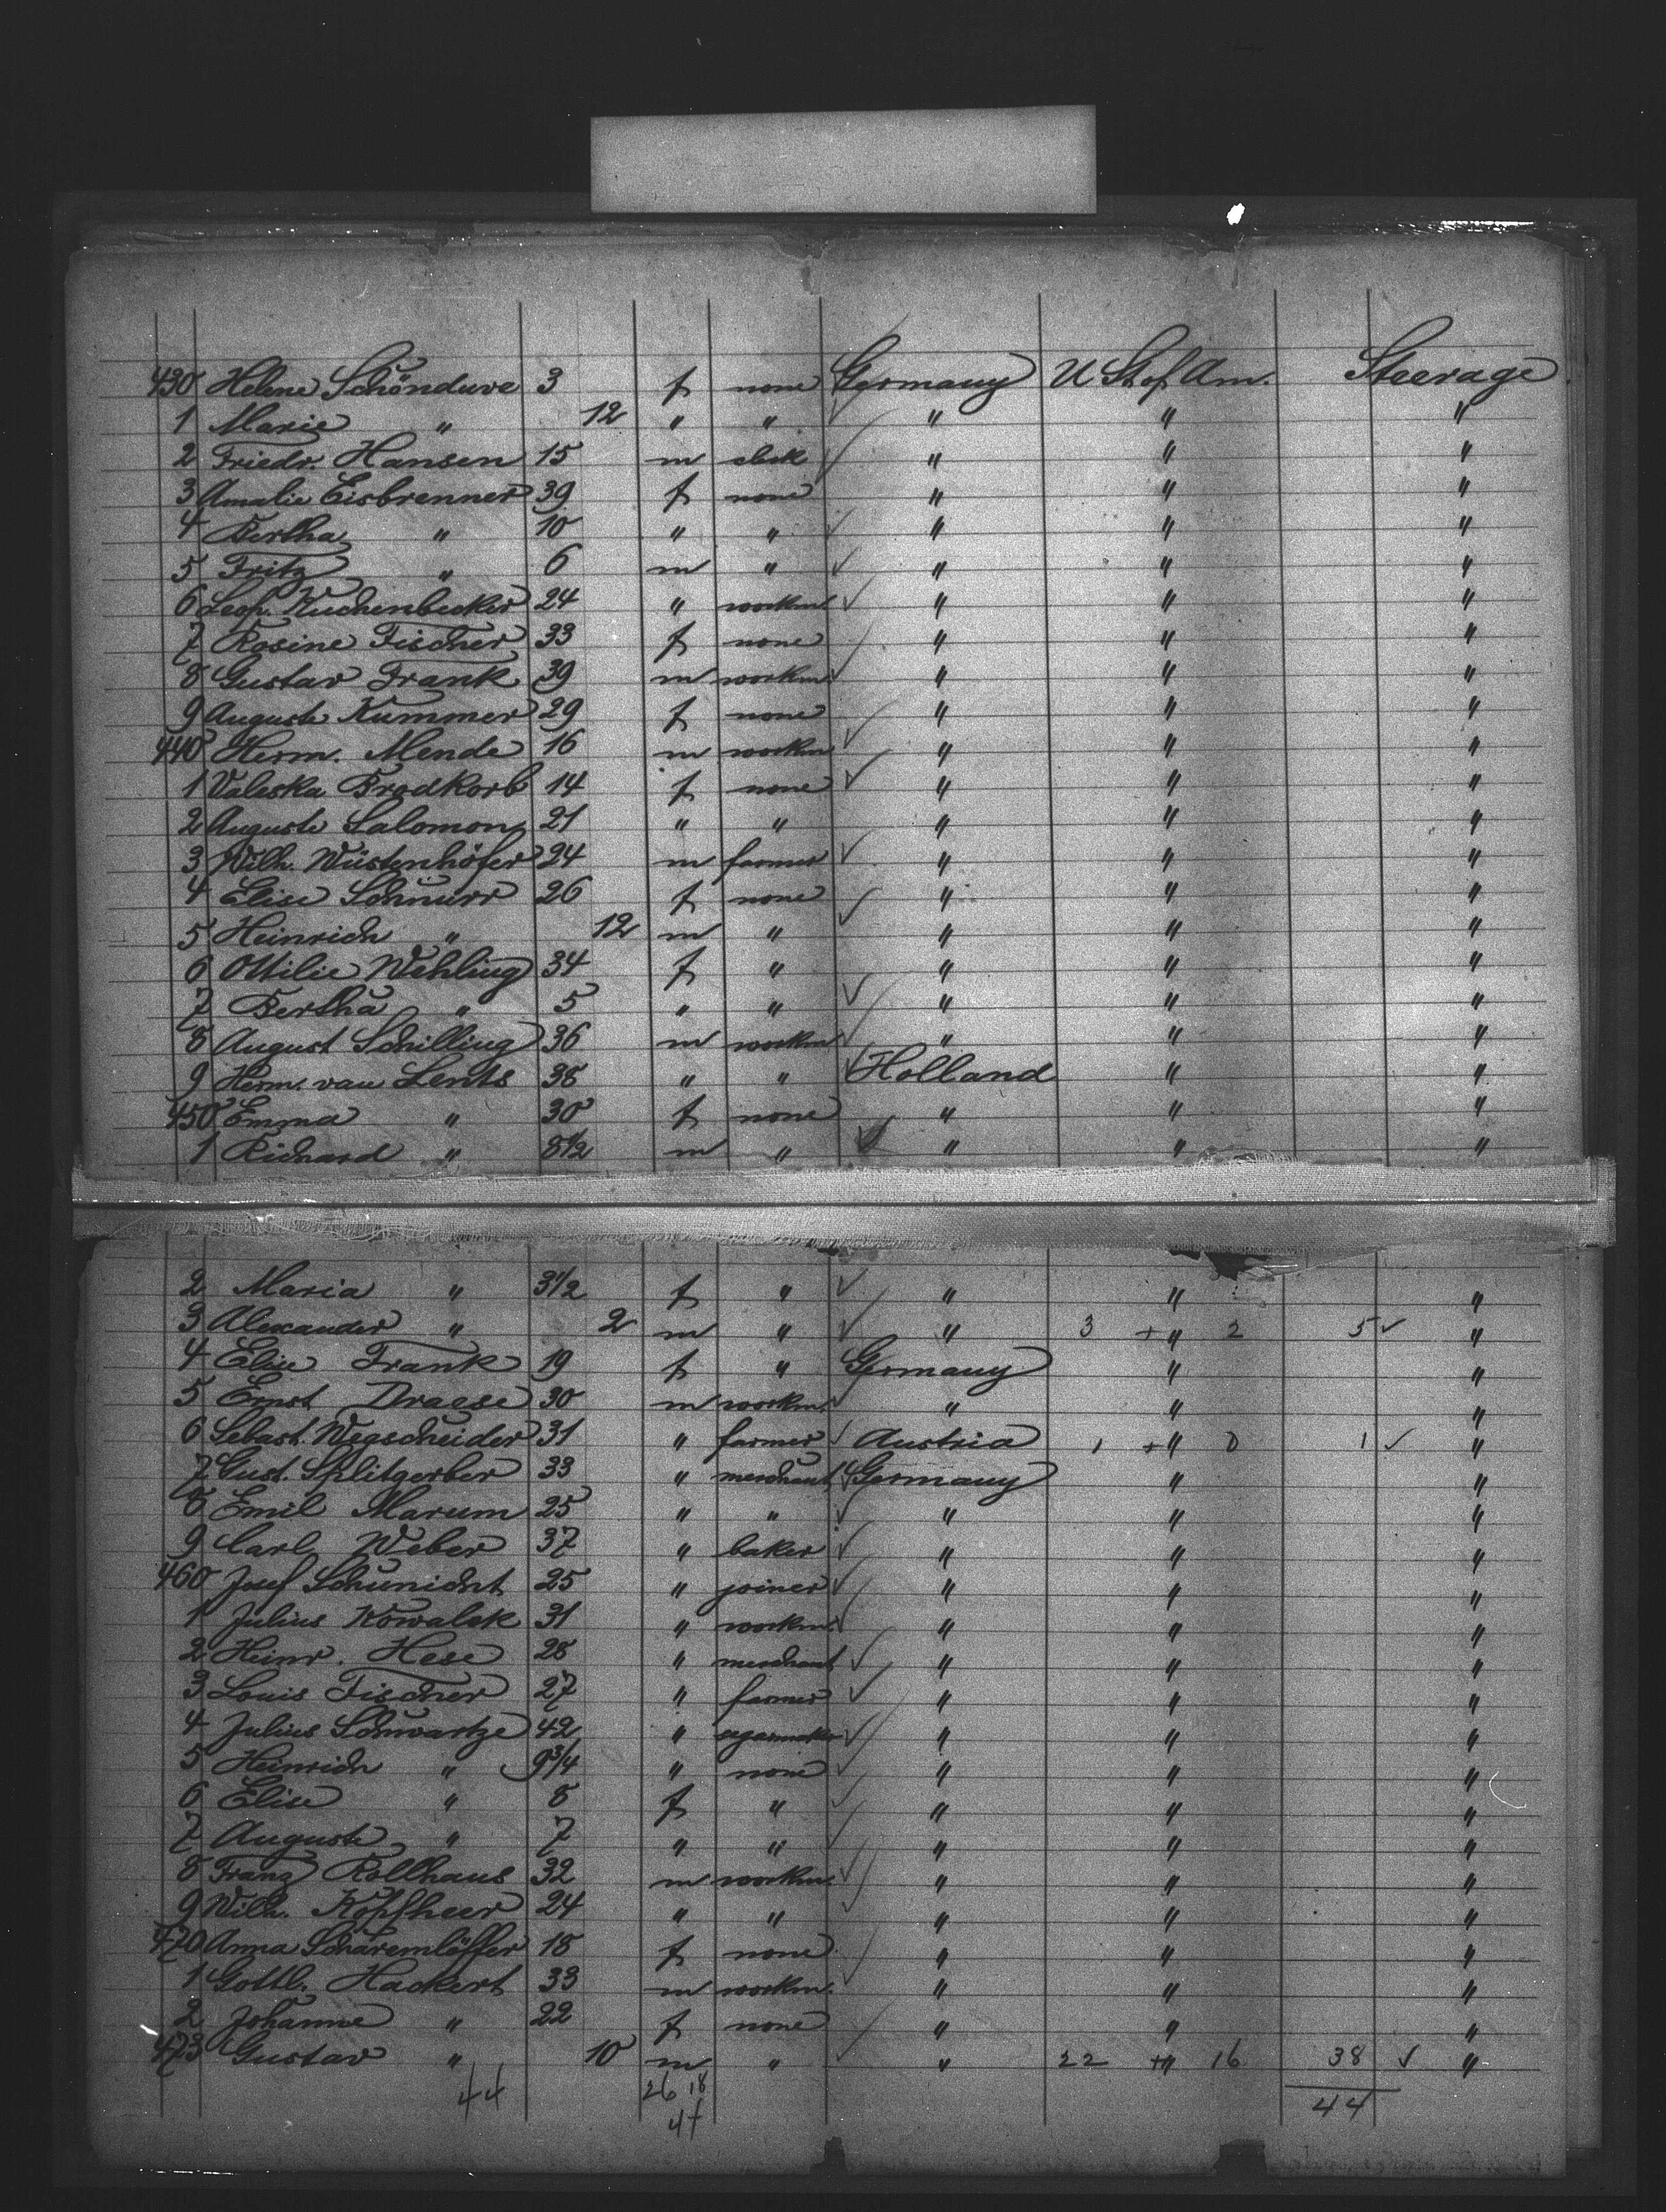 430 Helene Schönduve 3 f none Germany U St of Am. Steerage
1 Marie " 12 " " " " "
2 Friedr. Hansen 15 m clerk " " "
3 Amalie Eisbrenner 39 f none " " "
4 Bertha " 10 " " " " "
5 Fritz " 6 m " " " "
6 Leop. Kuchenbecker 24 " workm. " " "
7 Rosine Fischer 33 f none " " "
8 Gustav Frank 39 m workm. " " "
9 Auguste Kummer 29 f none " " "
440 Herm. Mende 16 m workm. " " "
1 Valeska Brodkorb 14 f none " " "
2 Auguste Salomon 21 " " " " "
3 Wilh. Wüstenhöfer 24 m farmer " " "
4 Elise Schnurr 26 f none " " "
5 Heinrich " 12 m " " " "
6 Ottilie Wehling 34 f " " " "
7 Bertha " 5 " " " " "
8 August Schilling 36 m workm " " "
9 Herm. van Lents 38 " " Holland " "
450 Emma " 30 f none " " "
1 Richard " 8 1/2 m " " " "
2 Maria " 3 1/2 f " " " "
3 Alexander " 2 m " " 3 + " 2 5 "
4 Elise Frank 19 f " Germany " "
5 Ernst Draese 30 m workm. " " "
6 Sebast. Wegscheider 31 " farmer Austria 1 + " 0 1 "
7 Gust. Splitgerber 33 " merchant Germany " "
8 Emil Marum 25 " " " " "
9 Carl Weber 37 " baker " " "
460 Josef Schunicht 25 " joiner " " "
1 Julius Kowalek 31 " workm. " " "
2 Heinr. Hese 28 " merchant " " "
3 Louis Fischer 27 " farmer " " "
4 Julius Schwartze 42 " cigarmaker " " "
5 Heinrich " 9 3/4 " none " " "
6 Elise " 8 f " " " "
7 Auguste " 7 " " " " "
8 Franz Rollhaus 32 m workm. " " "
9 Wilh. Köpfheer 24 " " " " "
470 Anna Scharemlöffer 18 f none " " "
1 Gottl. Hackert 33 m workm. " " "
2 Johanne " 22 f none " " "
473 Gustav " 10 m " " 22 + " 16 38 "
44 26 18 44
44